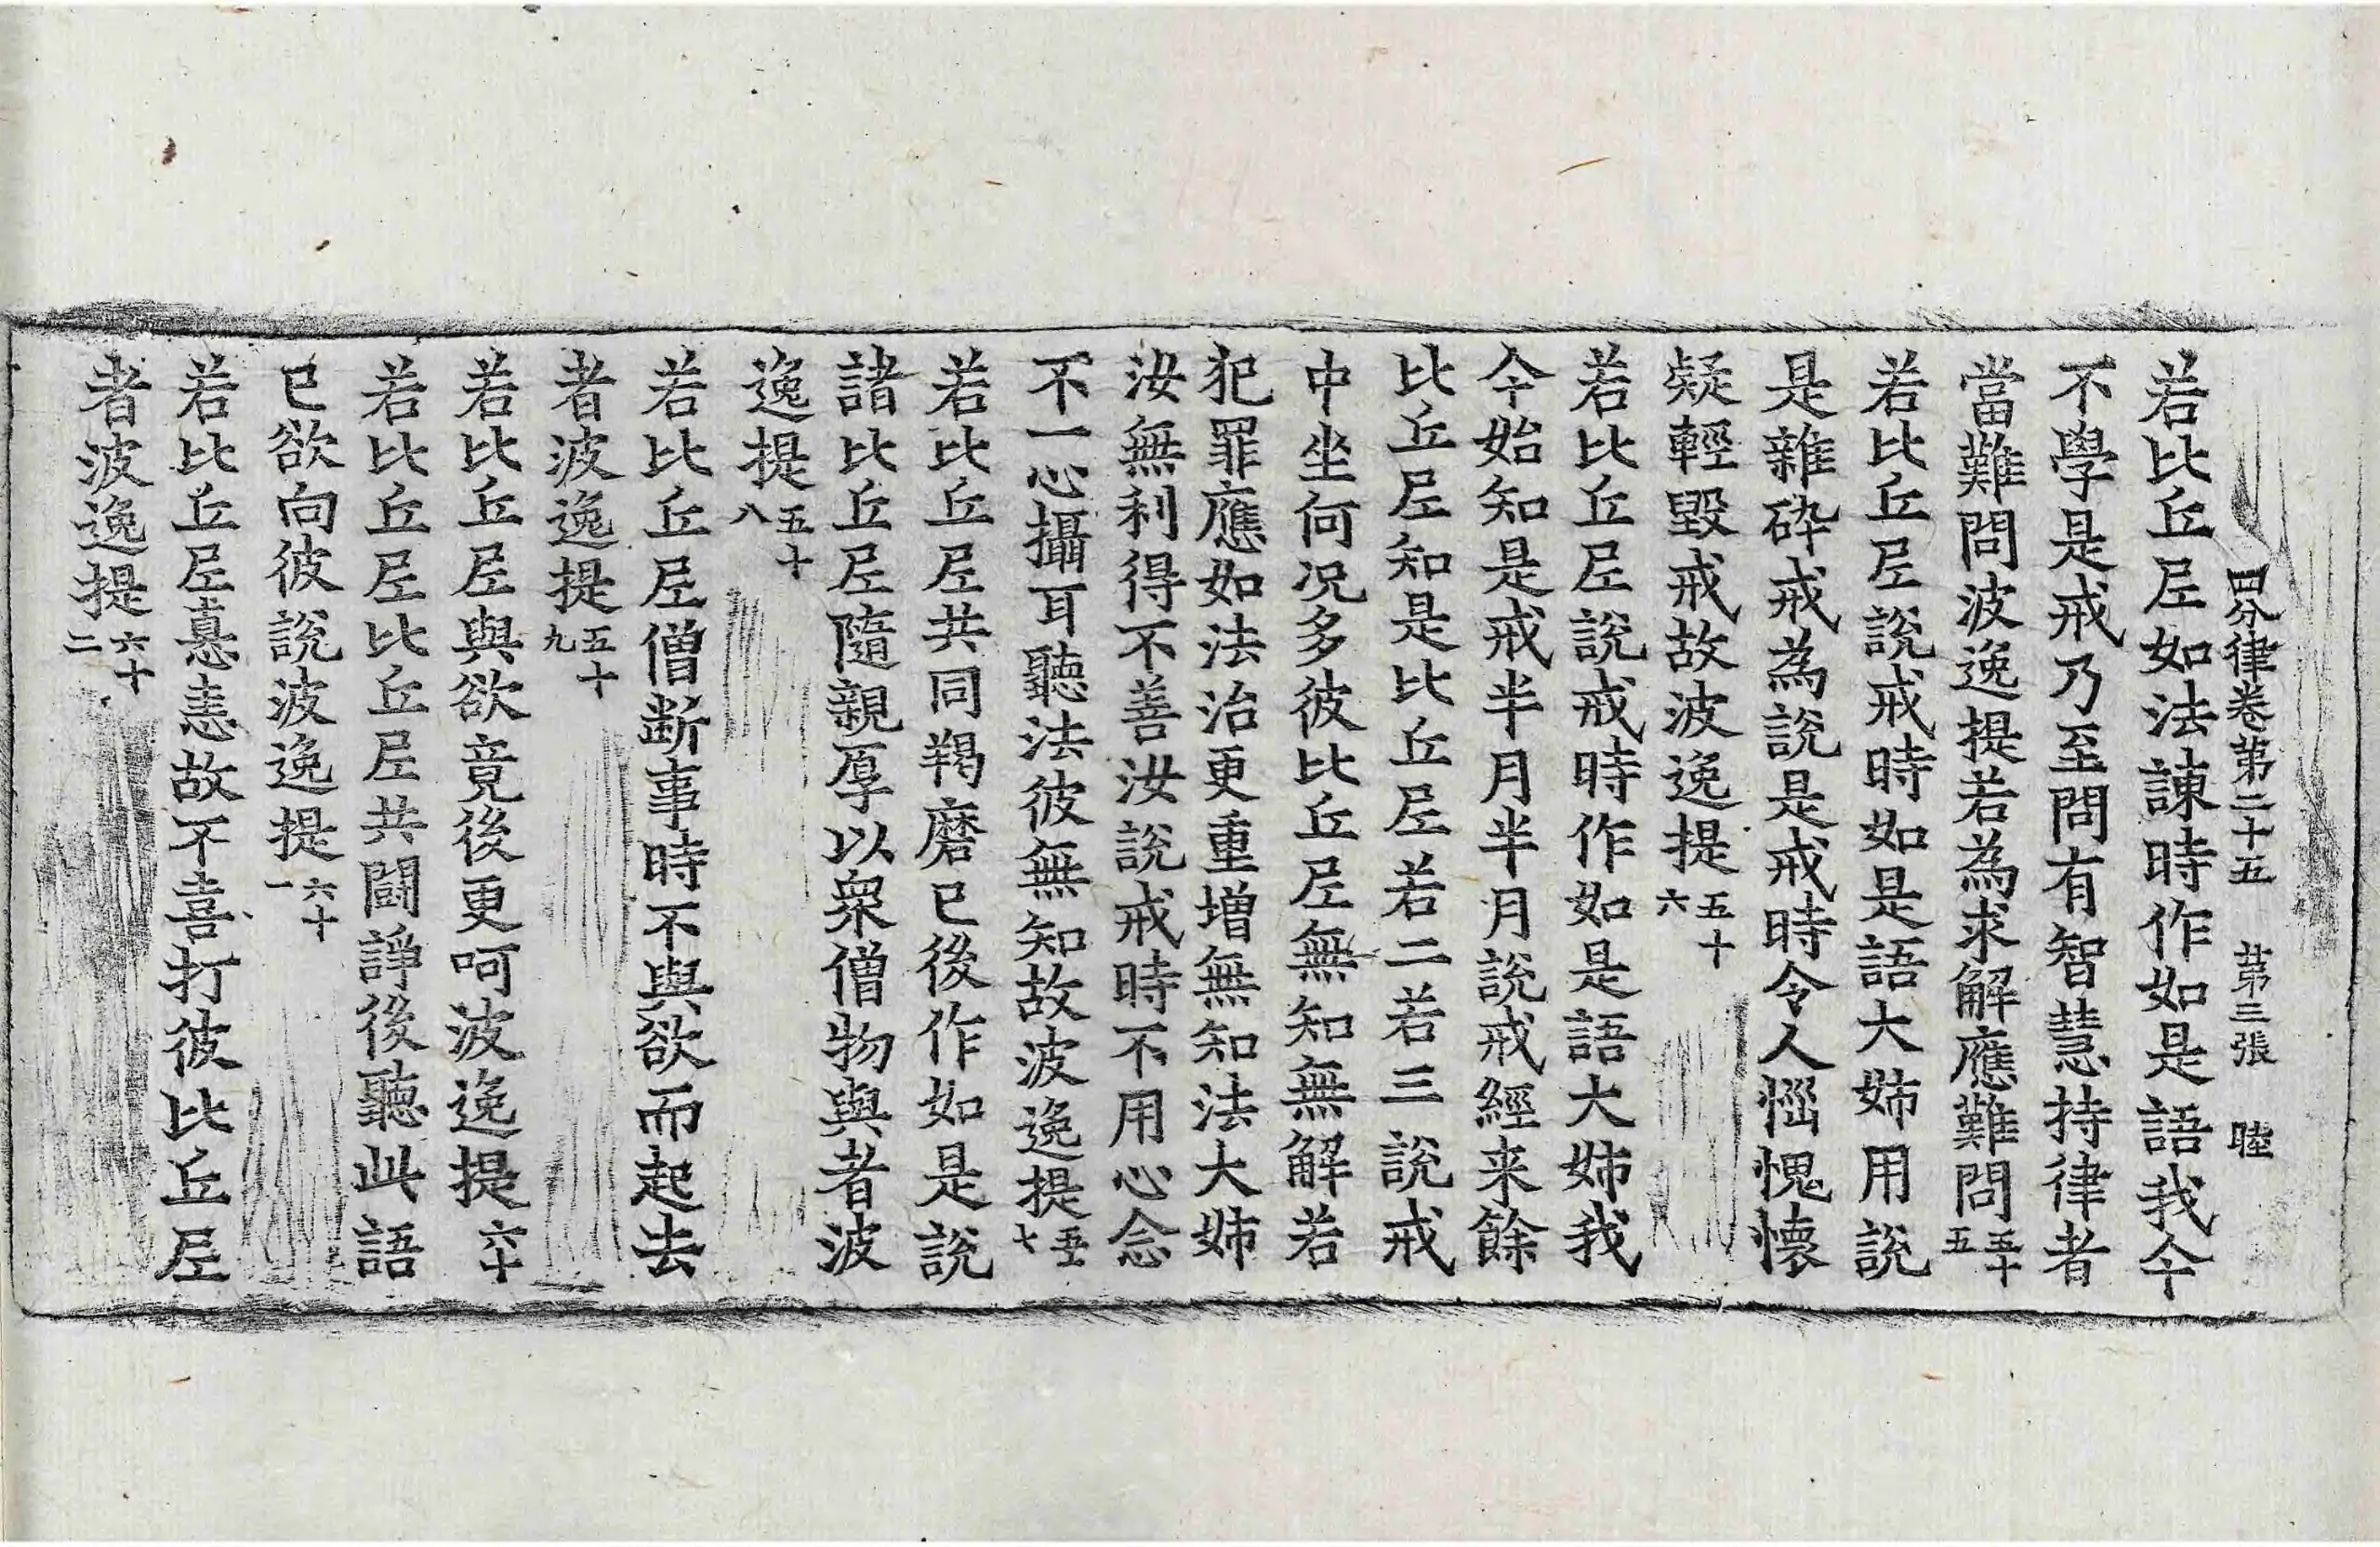 四分律卷第二十五　第三張　睦
若比丘尼如法諫時作如是語我今
不學是戒乃至問有智慧持律者
當難問波逸提若為求解應難問五十五
若比丘尼說戒時如是語大姊用說
是雜碎戒為說是戒時令人惱愧懷
疑輕毀戒故波逸提五十六
若比丘尼說戒時作如是語大姊我
今始知是戒半月半月說戒經来餘
比丘尼知是比丘尼若二若三說戒
中坐何况多彼比丘尼無知無解若
犯罪應如法治更重增無知法大姊
汝無利得不善汝說戒時不用心念
不一心攝耳聽法彼無知故波逸提五十七
若比丘尼共同羯磨已後作如是說
諸比丘尼隨親厚以衆僧物與者波
逸提五十八
若比丘尼僧断事時不與欲而起去
者波逸提五十九
若比丘尼與欲竟後更呵波逸提六十
若比丘尼比丘尼共鬪諍後聽此語
已欲向彼說波逸提六十一
若比丘尼恚故不喜打彼比丘尼
者波逸提六十二